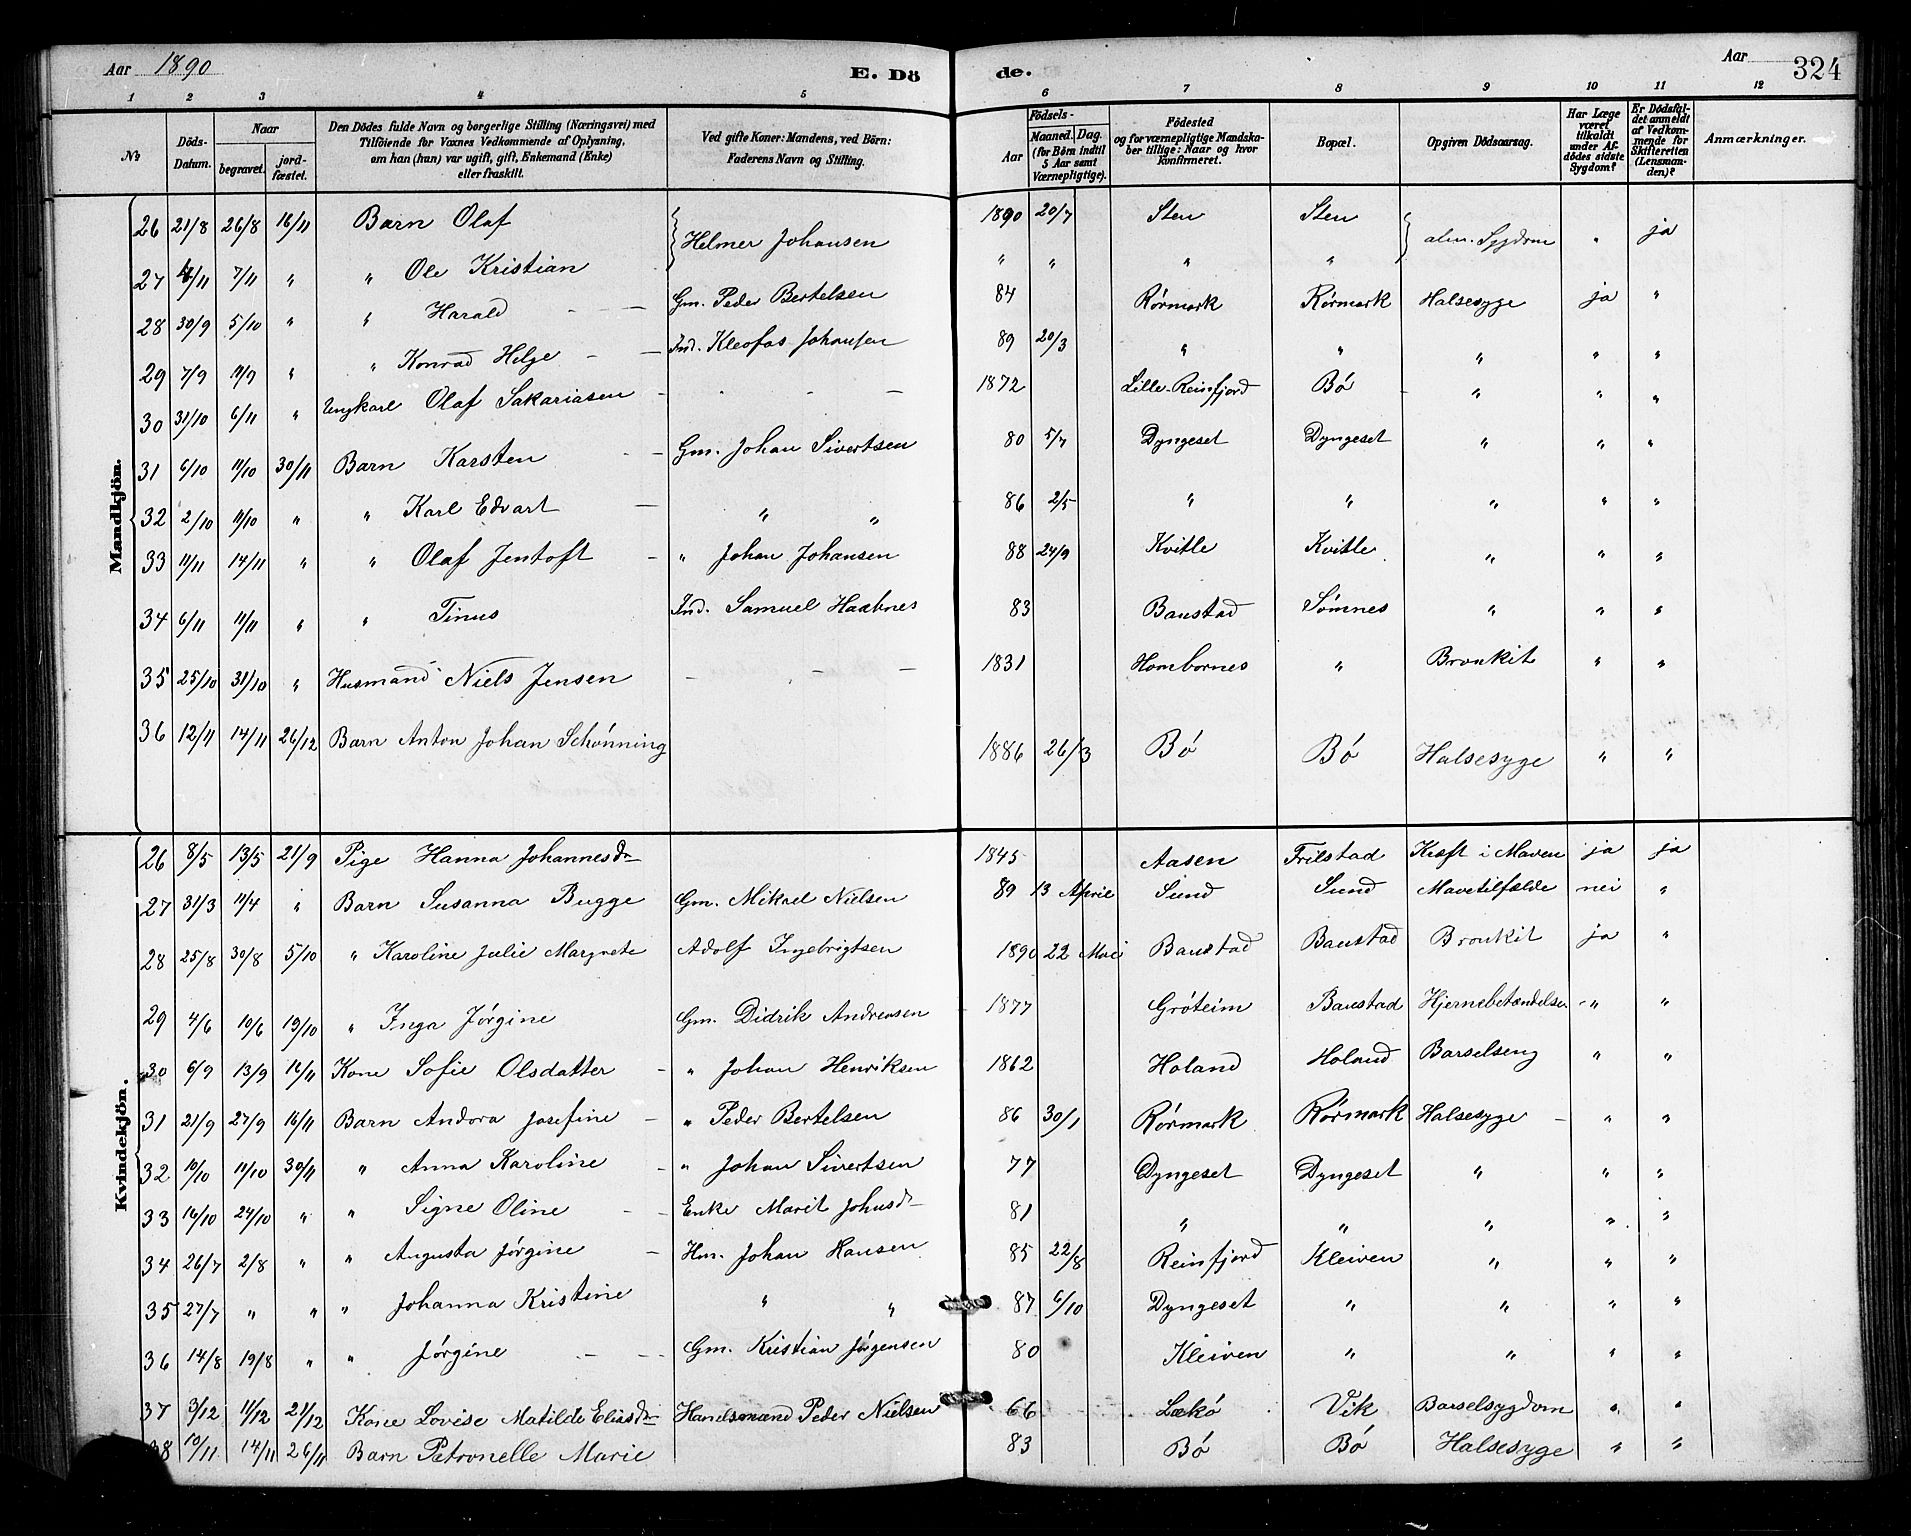 Aar 1890
E. Dö
de.
Aar
324
1 2 3 4 5 6 7 8 9 10 11 12
№
Döds-Datum.
Naar
begravet.
jord-fæstet.
Den Dödes fulde Navn og borgerlige Stilling (Næringsvei) med
Tilföiende for Voxnes Vedkommende af Oplysning,
om han (hun) var ugift, gift, Enkemand (Enke)
eller fraskilt.
Ved gifte Koner: Mandens, ved Börn:
Faderens Navn og Stilling.
Födsels-
Aar
Maaned. Dag.
(for Börn indtil
5 Aar samt
Værnepligtige).
Födested
og for værnepligtige Mandska-
ber tillige: Naar og hvor
Konfirmeret.
Bopæl.
Opgiven Dödsaarsag.
Har Læge
været
tilkaldt
under Af-
dödes sidste
Sygdom?
Er Dödsfal-
det anmeldt
af Vedkom-
mende for
Skifteretten
(Lensman-
den)?
Anmærkninger.
Mandkjön.
26 21/8 26/8 16/11 Barn Olaf Helmer Johansen 1890 20/7 Sten Sten alm. Sygdom " ja
27 4/11 7/11 " " Ole Kristian " " " "
28 30/9 5/10 " " Harald Gm. Peder Bertelsen 84 Rørmark Rørmark Halsesyge ja "
29 7/9 11/9 " " Konrad Helge Ind. Kleofas Johansen 89 20/3 " " " " "
30 31/10 6/11 " Ungkarl Olaf Sakariasen 1872 Lille-Reinfjord Bø " " "
31 6/10 11/10 30/11 Barn Karsten Gm. Johan Sivertsen 80 5/7 Dyngeset Dyngeset " " "
32 2/10 11/10 " " Karl Edvart " " 86 2/5 " " " " "
33 11/11 14/11 " " Olaf Jentoft " Johan Johansen 88 24/9 Kvitle Kvitle " " "
34 6/11 11/11 " " Tinus Ind. Samuel Haabnes 83 Baustad Sømnes " " "
35 25/10 31/10 " Husmand Niels Jensen 1831 Hombornes " Bronkit " "
36 12/11 14/11 26/12 Barn Anton Johan Schønning 1886 26/3 Bø Bø Halsesyge " "
Kvindekjön.
26 8/5 13/5 21/9 Pige Hanna Johannesdr 1845 Aasen Frilstad Kræft i Maven ja ja
27 31/3 11/4 " Barn Susanna Bugge Gm. Mikael Nielsen 89 13 April Sund Sund Mavetilfælde nei "
28 25/8 30/8 5/10 " Karoline Julie Margrete Adolf Ingebrigtsen 1890 22 Mai Baustad Baustad Bronkit ja "
29 4/6 10/6 19/10 " Inga Jørgine Gm. Didrik Andreasen 1877 Grøteim Baustad Hjernebetændelse " "
30 6/9 13/9 16/11 Kone Sofie Olsdatter " Johan Henriksen 1862 Holand Holand Barselseng " "
31 21/9 27/9 16/11 Barn Andora Josefine " Peder Bertelsen 86 30/1 Rørmark Rørmark Halsesyge " "
32 10/10 11/10 30/11 " Anna Karoline " Johan Sivertsen 77 Dyngeset Dyngeset " " "
33 16/10 24/10 " " Signe Oline Enke Marit Johusdr 81 " " " " "
34 26/7 2/8 " " Augusta Jørgine Hm. Johan Hansen 85 22/8 Reinfjord Kleiven " " "
35 27/7 " " " Johanna Kristine " " 87 6/10 Dyngeset " " " "
36 14/8 19/8 " " Jørgine Gm. Kristian Jørgensen 80 Kleiven " " " "
37 3/12 11/12 21/12 Kone Lovise Matilde Eliasdr Handsmand Peder Nielsen 66 Lekø Vik Barselsygdom " "
38 10/11 14/11 26/11 Barn Petronelle Marie 83 Bø Bø Halsesyge " "